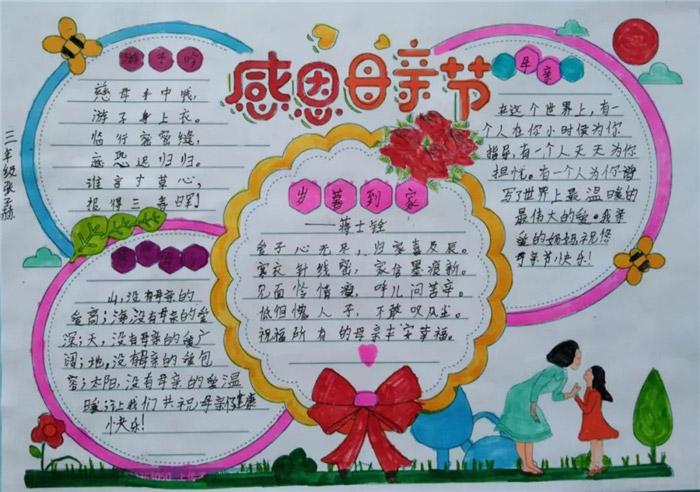 感恩母亲节
三年级
游子吟
慈母手中线,
游子身上衣。
临行密密缝,
意恐迟归归。
谁言寸草心,
报得三春晖!
母亲
在这个世界上,有一
个人在你小时候为你
指导,有一个人天天为你
担忧,有一个人为你谱
写世界上最温暖的
最伟大的爱。我亲
爱的妈妈祝您
母亲节快乐!
岁暮到家
——蒋士铨
爱子心无尽,归家喜及辰。
寒衣针线密,家信墨痕新。
见面怜清瘦,呼儿问苦辛。
低佪愧人子,不敢叹风尘。
祝福所有的母亲丰安幸福。
山,没有母亲的
爱高;海,没有母亲的爱
深;天,没有母亲的爱广
阔;地,没有母亲的爱包
容;太阳,没有母亲的爱温
暖;让我们共祝母亲们健康
快乐!